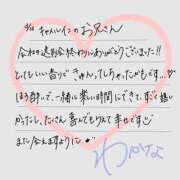 4/14 キャメルイン のお兄さん
今日の退勤会終わりにありがとうございました!!
とってもいい香りで きゅんってしちゃったかもです…♡
ほろ酔いで、一緒に楽しい時間にできて、すごく嬉し
かったし、たくさん喜んでもらえて 幸せです
また会えますように★
わかな